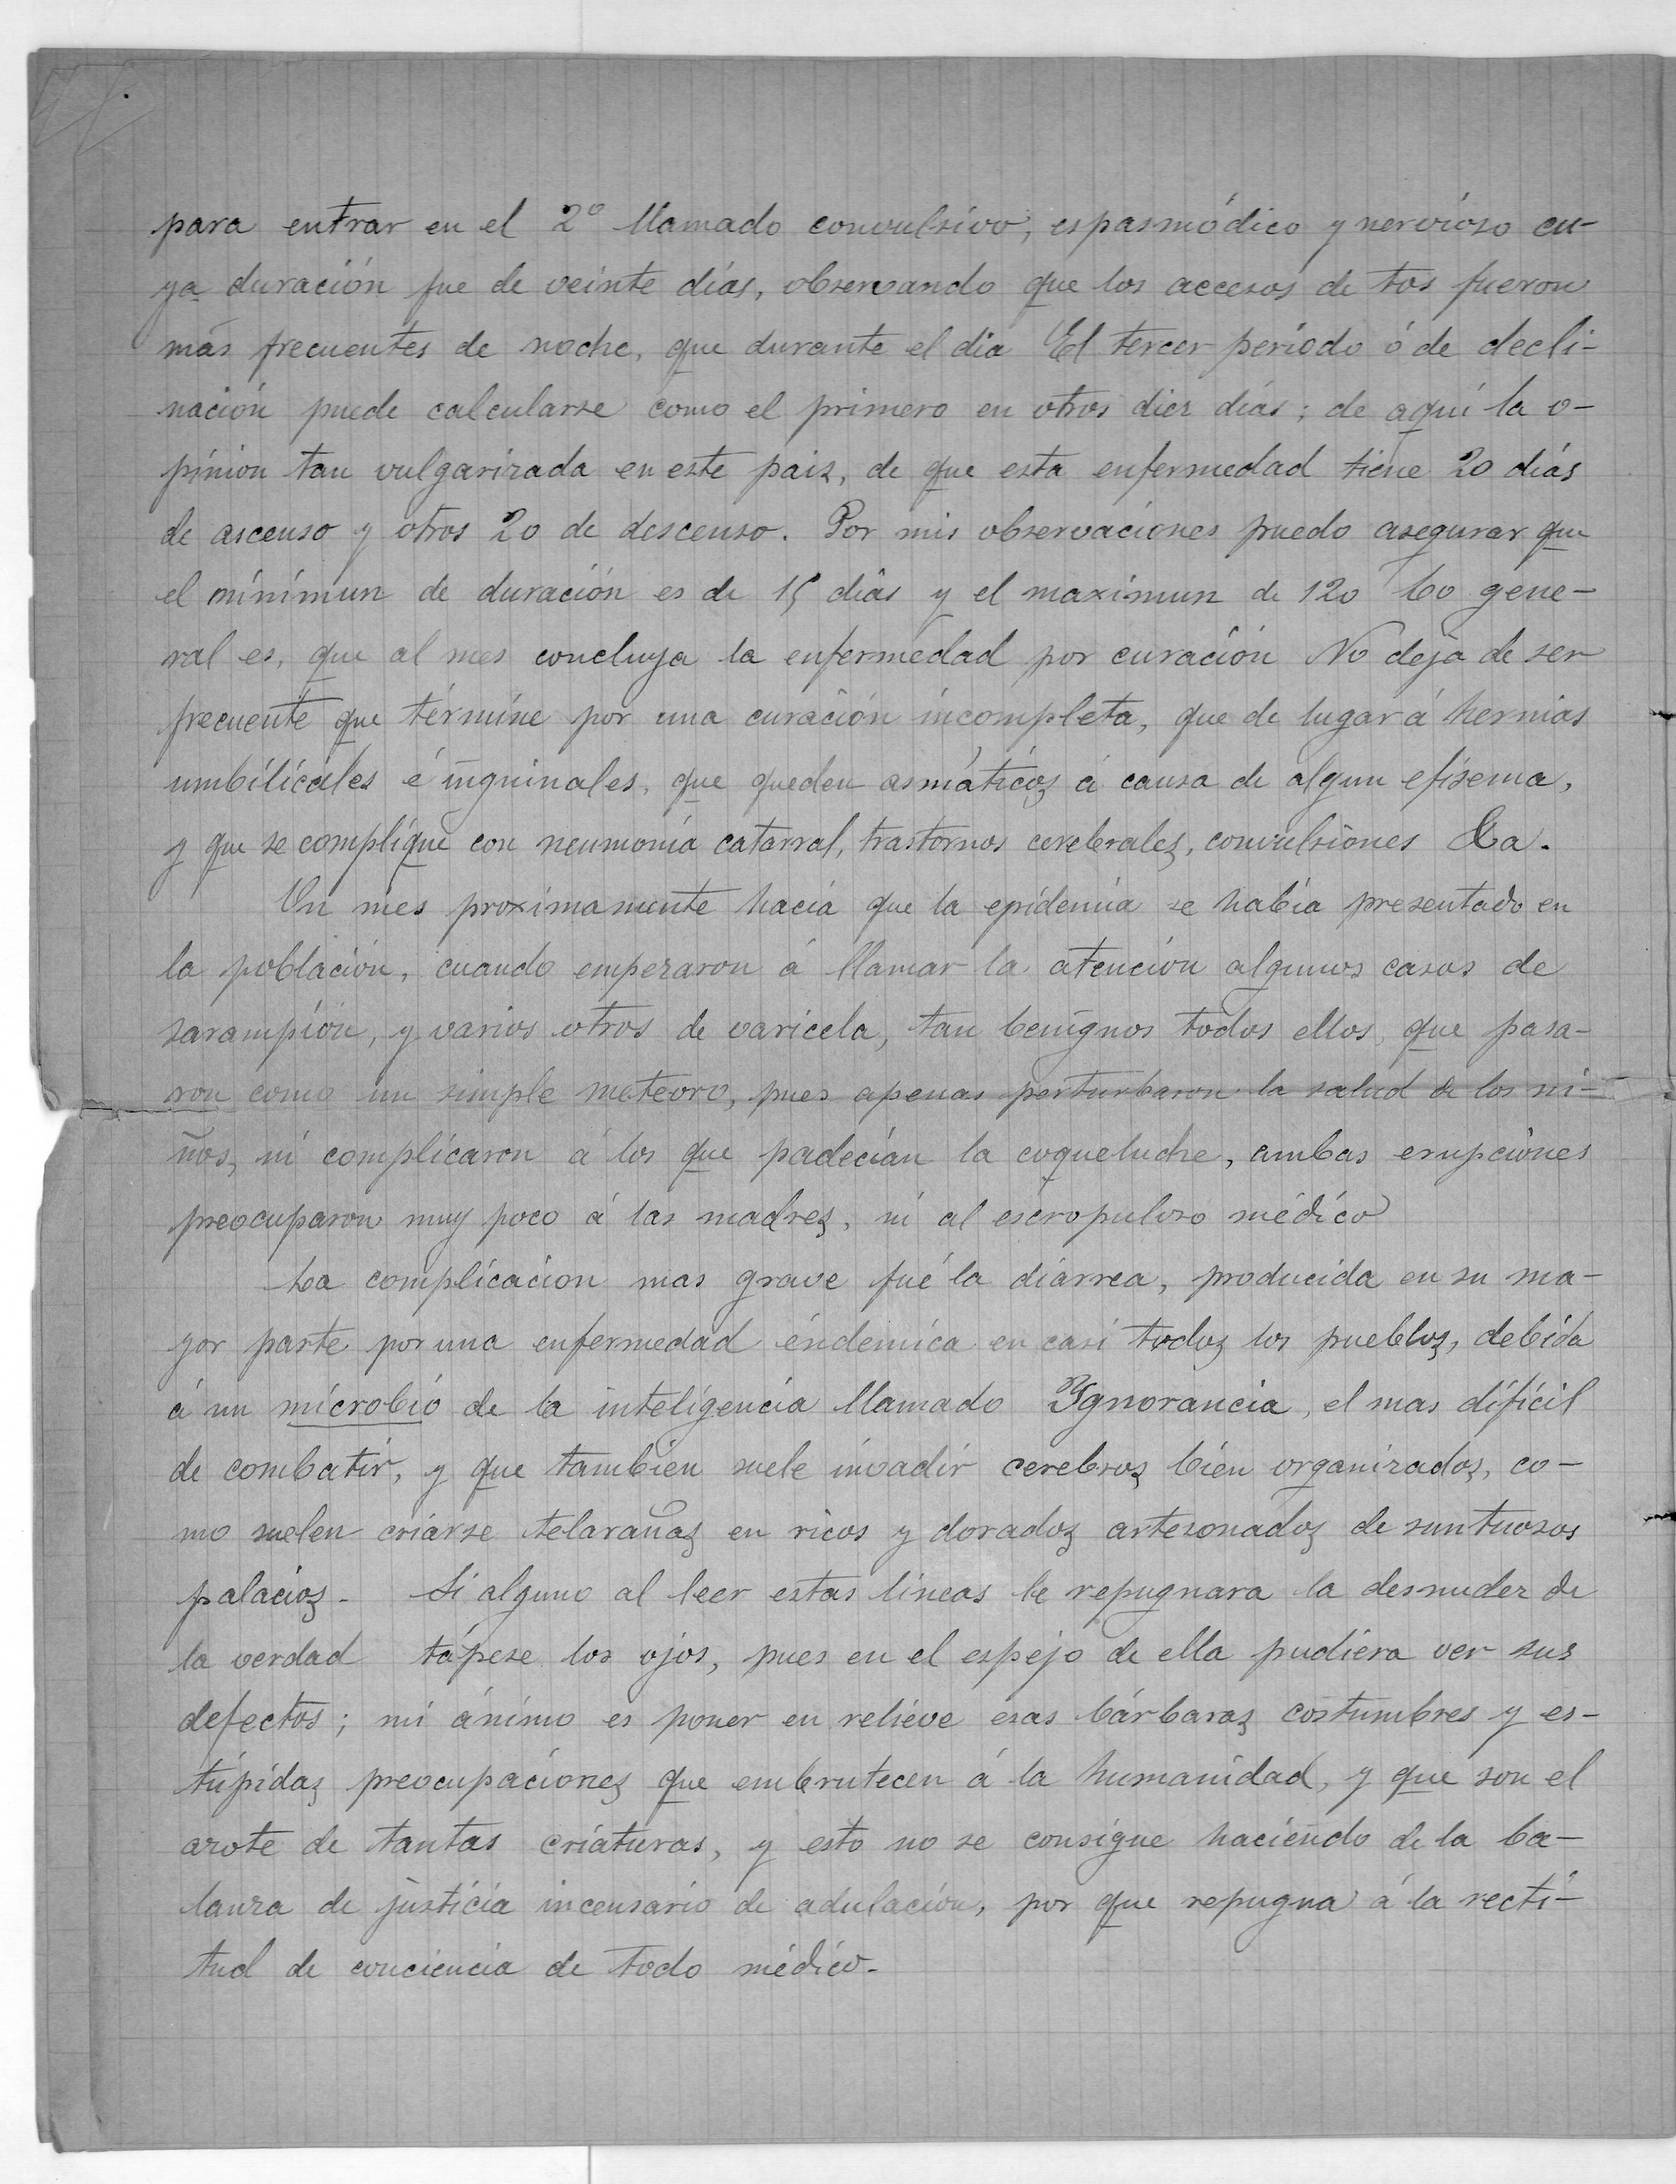 para entrar en el 2º llamado convulsivo, espasmódico y nervioso cu-
ya duración fue de veinte días, observando que los accesos de tos fueron
más frecuentes de noche, que durante el dia El tercer período ó de decli-
nación puede calcularse como el primero en otros diez días; de aquí la o-
pinion tan vulgarizada en este pais, de que esta enfermedad tiene 20 días
de ascenso y otros 20 de descenso. Por mis observaciones puedo asegurar que
el mínimun de duración es de 15 días y el maximun de 120 Lo gene-
ral es, que al mes concluya la enfermedad por curación No deja de ser
frecuente que términe por una curación incompleta, que de lugar á hernias
umbilicales é inguinales, que queden asmáticos á causa de algun efisema,
y que se complique con neumonía catarral, trastornos cerebrales, convulsiones &a.
Un mes proximamente hacia que la epidemia se había presentado en
la población, cuando empezaron á llamar la atención algunos casos de
sarampión, y varios otros de varicela, tan benignos todos ellos, que pasa-
ron como un simple meteoro, pues apenas perturbaron la salud de los ni-
ños, ni complicaron á los que padecían la coqueluche, ambas erupciones
preocuparon muy poco á las madres, ni al escropuloso médico
La complicacion mas grave fué la diarrea, producida en su ma-
yor parte por una enfermedad éndemica en casi todos los pueblos, debida
á un microbio de la inteligencia llamado Ygnorancia, el mas difícil
de combatir, y que tambien suele invadir cerebros bien organizados, co-
mo suelen criarse telarañas en ricos y dorados artesonados de suntuosos
palacios. Si alguno al leer estas lineas le repugnara la desnudez de
la verdad tápese los ojos, pues en el espejo de ella pudiera ver sus
defectos; mi ánimo es poner en relieve esas bárbaras costumbres y es-
túpidas preocupaciones que embrutecen á la humanidad, y que son el
azote de tantas criaturas, y esto no se consigue haciendo de la ba-
lanza de justicia incensario de adulación, por que repugna á la recti-
tud de conciencia de todo médico.